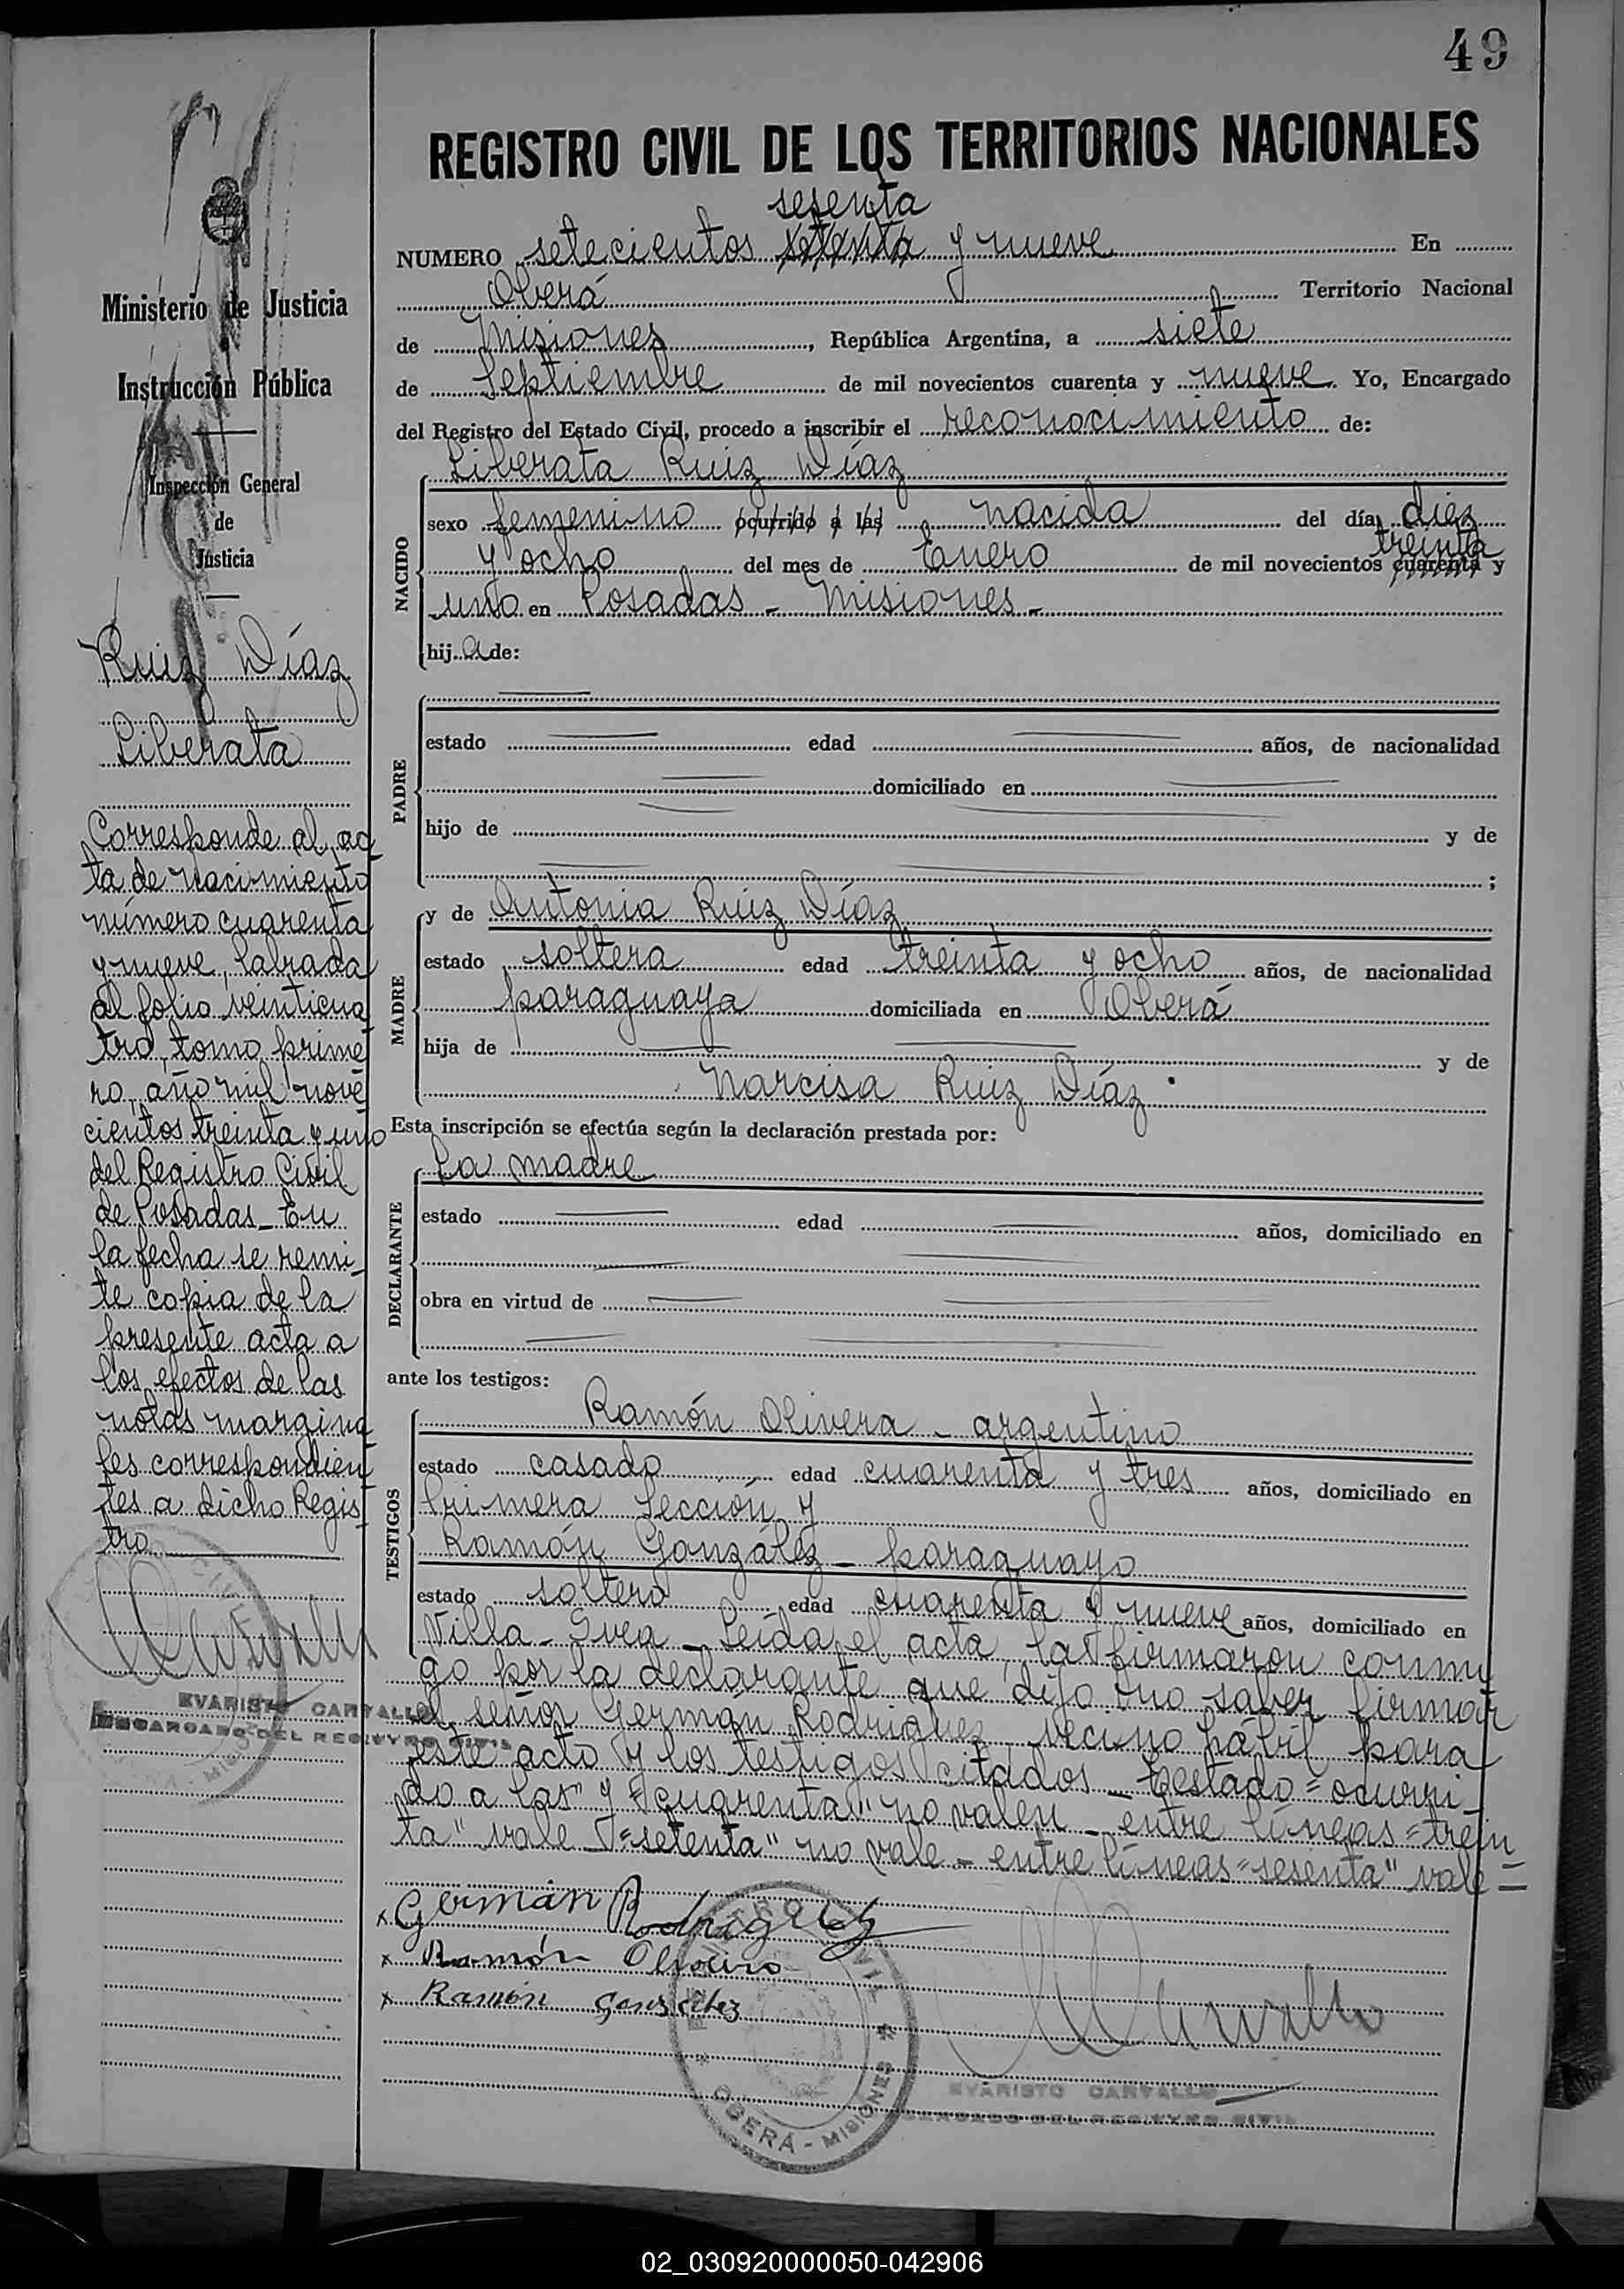 49
REGISTRO CIVIL DE LOS TERRITORIOS NACIONALES
sesenta
NUMERO setecientos setenta y nueve En
Oberá Territorio Nacional
de Misiones, República Argentina, a siete
de Septiembre de mil novecientos cuarenta y nueve. Yo, Encargado
del Registro del Estado Civil, procedo a inscribir el reconocimiento de:
Liberata Ruiz Díaz
NACIDO
sexo femenino ocurrido a las nacida del día diez
treinta
y ocho del mes de Enero de mil novecientos cuarenta y
uno en Posadas - Misiones -
hija de:
PADRE
estado edad años, de nacionalidad
domiciliado en
hijo de y de
;
MADRE
y de Antonia Ruiz Díaz
estado soltera edad treinta y ocho años, de nacionalidad
paraguaya domiciliada en Oberá
hija de y de
Narcisa Ruiz Díaz.
Esta inscripción se efectúa según la declaración prestada por:
La madre
DECLARANTE
estado edad años, domiciliado en
obra en virtud de
ante los testigos:
TESTIGOS
Ramón Olivera - argentino
estado casado edad cuarenta y tres años, domiciliado en
Primera Sección y
Ramón González - paraguayo
estado soltero edad cuarenta y nueve años, domiciliado en
Villa - Svea - Leida el acta, la firmaron conmi
go por la declarante que dijo no saber firmar
el señor Germán Rodriguez, vecino hábil para
este acto y los testigos citados - Testado = ocurri-
do a las" y "cuarenta" no valen - entre líneas = trein
ta" vale - "setenta" no vale - entre líneas "sesenta" vale =
x Germán Rodriguez
x Ramón Olivera
x Ramón Gonzalez
OBERÁ - MISIONES
EVARISTO CARVALLO
ENCARGADO DEL REGISTRO CIVIL
Ministerio de Justicia
Instrucción Pública
Inspección General
de
Justicia
Ruiz Díaz
Liberata
Corresponde al ac
ta de nacimiento
número cuarenta
y nueve, labrada
al folio veinticua
tro, tomo prime
ro, año mil nove
cientos treinta y uno
del Registro Civil
de Posadas - En
la fecha se remi-
te copia de la
presente acta a
los efectos de las
notas margina
les correspondien
tes a dicho Regis
tro
EVARISTO CARVALLO
ENCARGADO DEL REGISTRO CIVIL
02_030920000050-042906